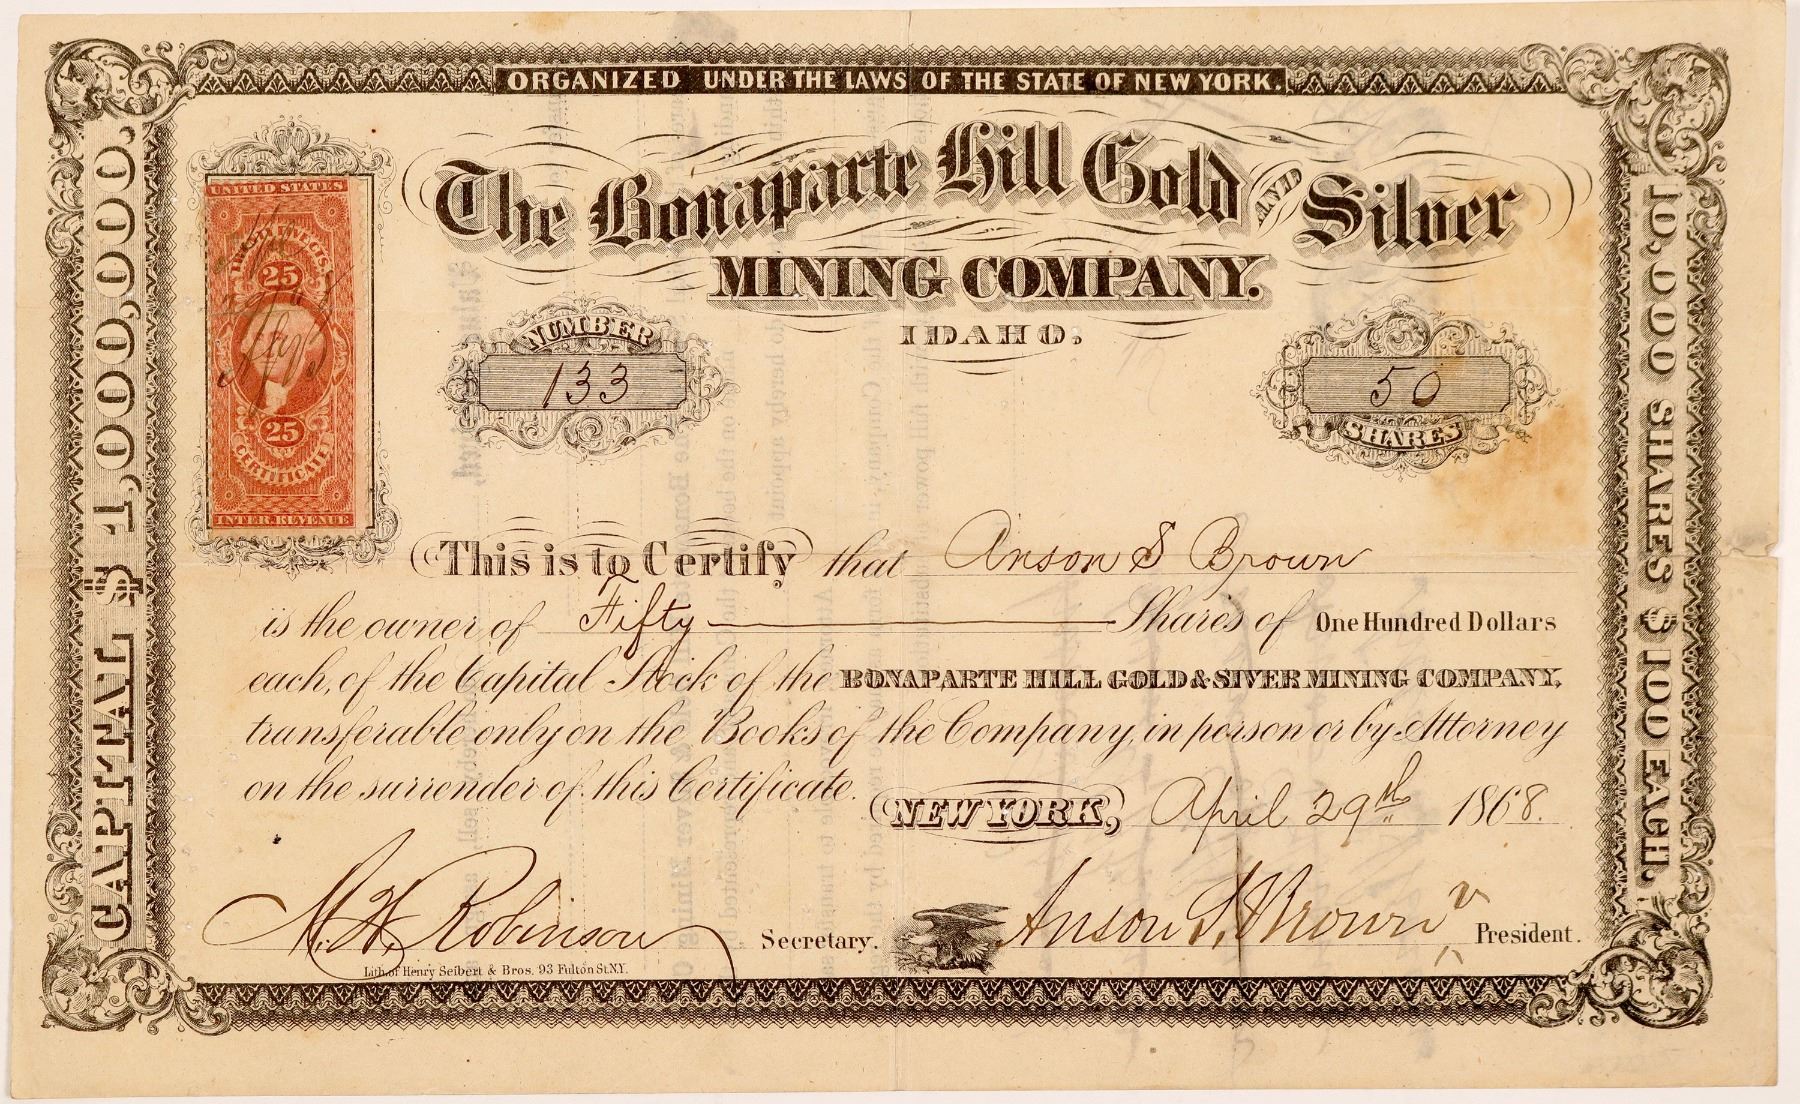 ORGANIZED UNDER THE LAWS OF THE STATE OF NEW YORK.
CAPITAL $1,000,000.
10,000 SHARES $100 EACH.
UNITED STATES
25
25
CERTIFICATE
INTER. REVENUE
The Bonaparte Hill Gold AND Silver
MINING COMPANY.
IDAHO.
NUMBER
133
50
SHARES
This is to Certify that Anson S Brown
is the owner of Fifty Shares of One Hundred Dollars
each, of the Capital Stock of the BONAPARTE HILL GOLD & SIVER MINING COMPANY,
transferable only on the Books of the Company, in person or by Attorney
on the surrender of this Certificate.
NEW YORK, April 29th 1868.
M. H. Robinson Secretary.
Anson S. Brown President.
Lith. of Henry Seibert & Bros. 93 Fulton St. N.Y.